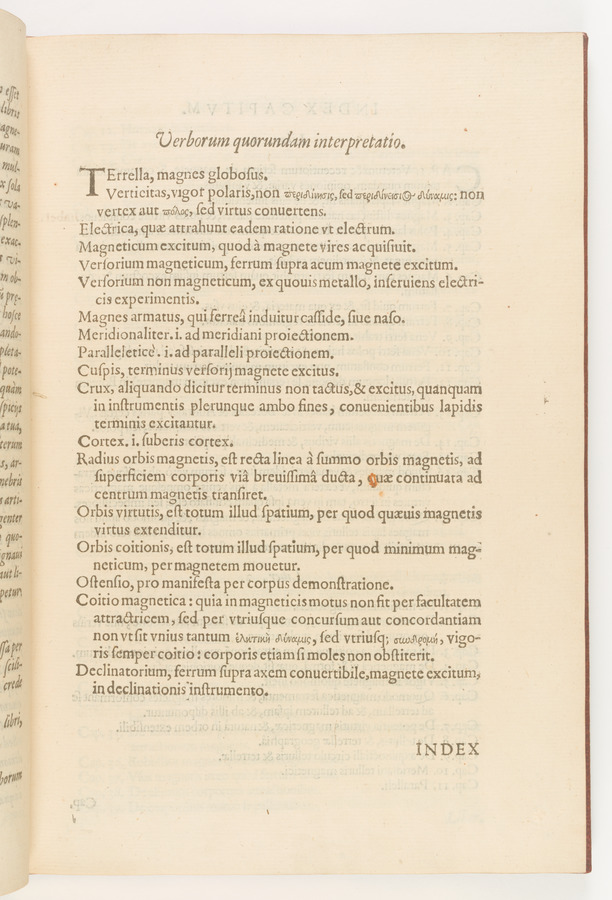 Verborum quorundam interpretatio.
TErrella, magnes globoſus.
Verticitas, vigor polaris, non περιδίνησις, ſed περιδινείσιος δύναμις: non
vertex aut πόλος, ſed virtus conuertens.
Electrica, quæ attrahunt eadem ratione vt electrum.
Magneticum excitum, quod à magnete vires acquiſiuit.
Verſorium magneticum, ferrum ſupra acum magnete excitum.
Verſorium non magneticum, ex quouis metallo, inſeruiens electri-
cis experimentis.
Magnes armatus, qui ferreâ induitur caſſide, ſiue naſo.
Meridionaliter. i. ad meridiani proiectionem.
Paralleleticè. i. ad paralleli proiectionem.
Cuſpis, terminus verſorij magnete excitus.
Crux, aliquando dicitur terminus non tactus, & excitus, quanquam
in inſtrumentis plerunque ambo fines, conuenientibus lapidis
terminis excitantur.
Cortex. i. ſuberis cortex.
Radius orbis magnetis, eſt recta linea à ſummo orbis magnetis, ad
ſuperficiem corporis viâ breuiſſimâ ducta, quæ continuata ad
centrum magnetis tranſiret.
Orbis virtutis, eſt totum illud ſpatium, per quod quæuis magnetis
virtus extenditur.
Orbis coitionis, eſt totum illud ſpatium, per quod minimum mag-
neticum, per magnetem mouetur.
Oſtenſio, pro manifeſta per corpus demonſtratione.
Coitio magnetica: quia in magneticis motus non fit per facultatem
attractricem, ſed per vtriuſque concurſum aut concordantiam
non vt ſit vnius tantum ἑλκτικὴ δύναμις, ſed vtriuſq; συνδρομή, vigo-
ris ſemper coitio: corporis etiam ſi moles non obſtiterit.
Declinatorium, ferrum ſupra axem conuertibile, magnete excitum,
in declinationis inſtrumento.
INDEX